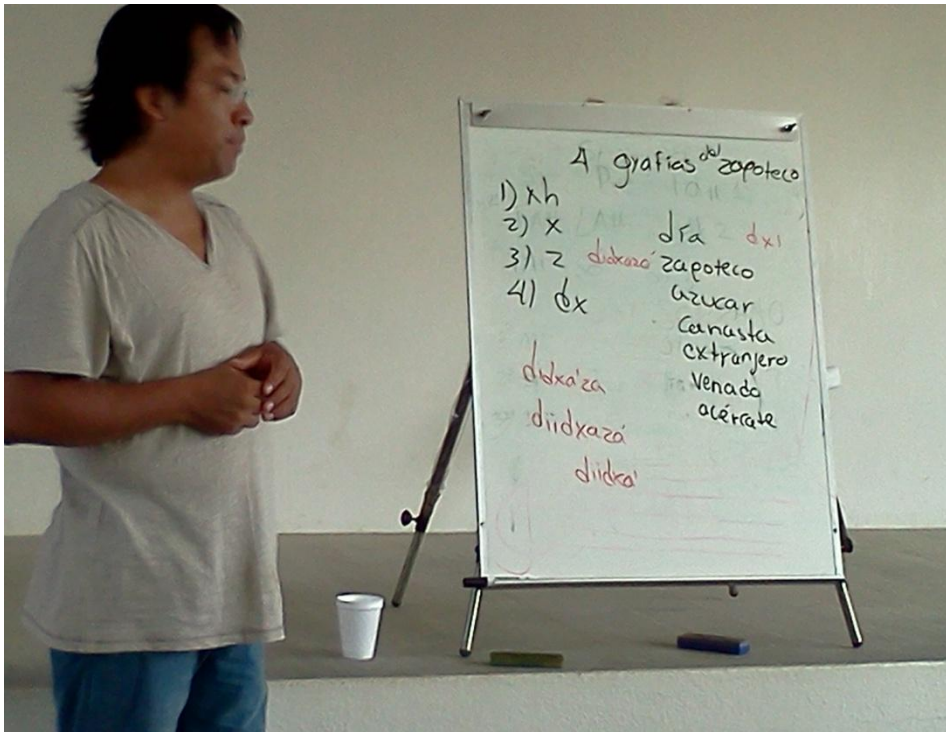 4 grafias del zapoteco
1) xh
2) x
3) z
4) dx
día dxi
didxazá zapoteco
azucar
canasta
extranjero
venado
acércate
didxa'za
diidxazá
diidxa'